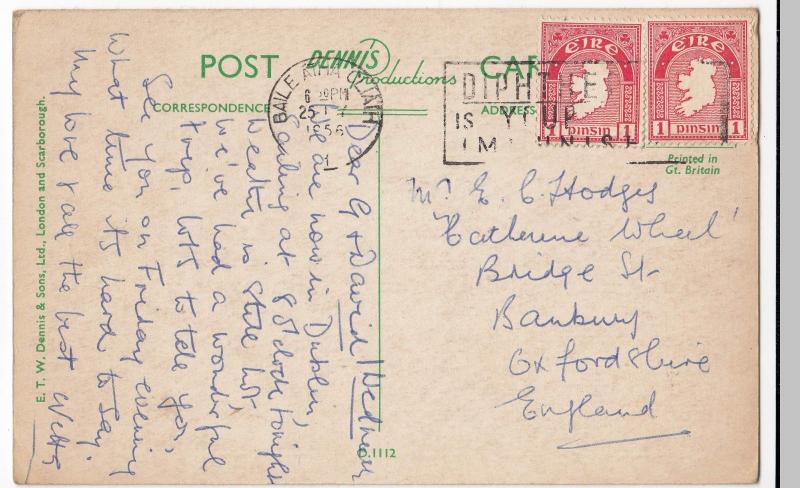 POST CARD
DENNIS
Productions
CORRESPONDENCE
ADDRESS
BAILE ÁTHA CLIATH
6 PM
25
1956
1
EIRE
1 PINSIN 1
EIRE
1 PINSIN 1
Printed in
Gt. Britain
Dear G & David
We are now in Dublin,
sailing at 8 o'clock tonight
Weather is still hot
We've had a wonderful
trip, lots to tell you,
See you on Friday evening
What time its hard to say.
My love & all the best
Wednesday
Mr E. C. Hodges
'Catherine Wheel'
Bridge St
Banbury
Oxfordshire
England
E. T. W. Dennis & Sons, Ltd., London and Scarborough.
D.1112